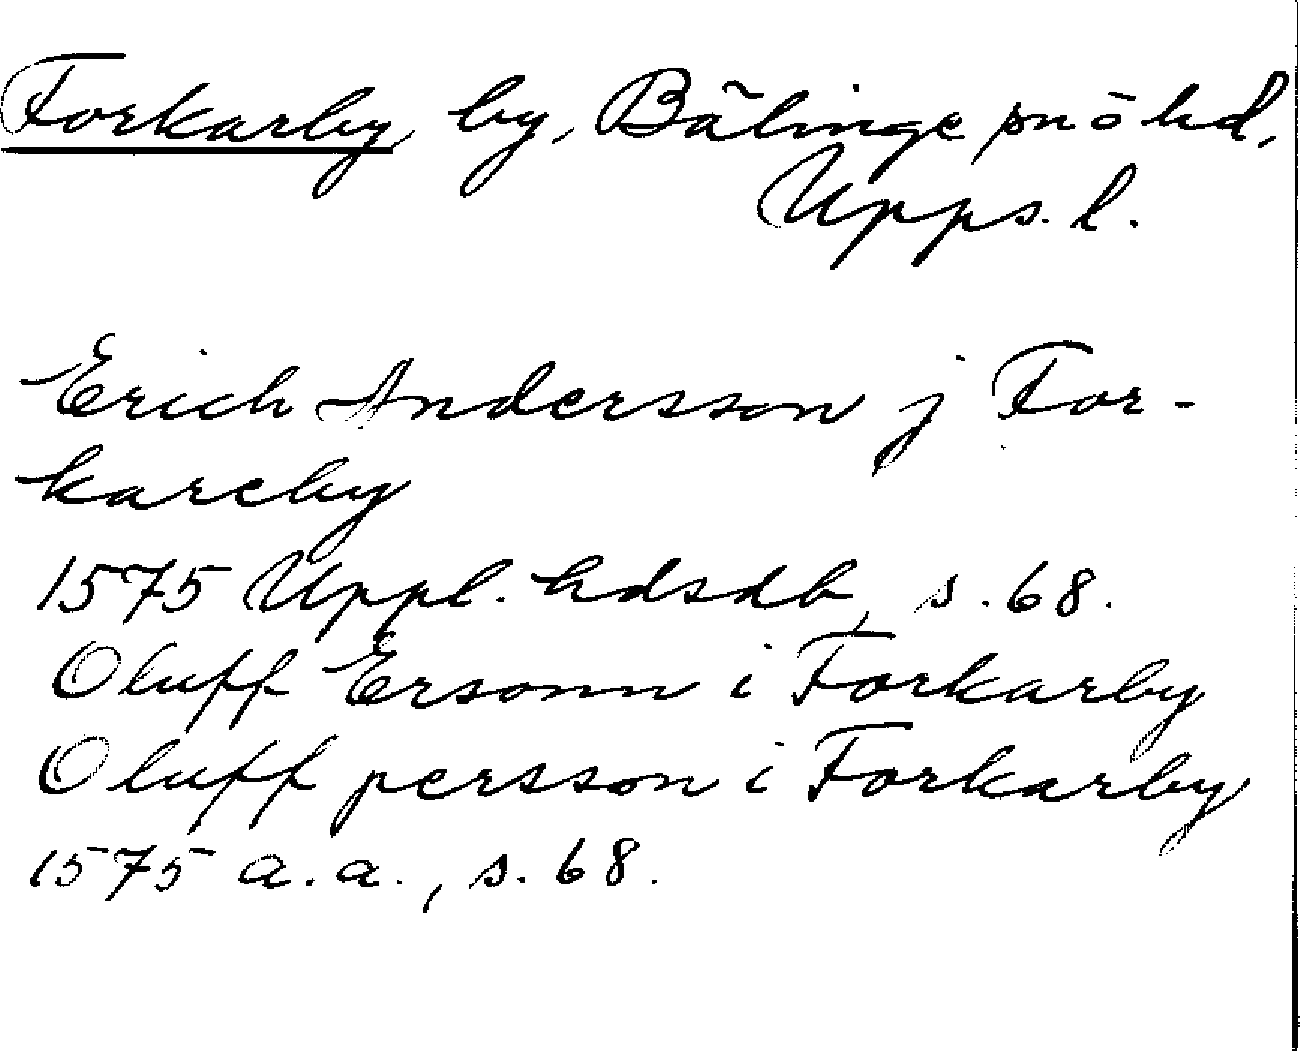 Forkarby, by, Bälinge sn ö hd,
Upps. l.
Erich Andersson j For-
kareby
1575 Uppl. hdsdb, s. 68.
Oluff Ersonn i Forkarby
Oluff persson i Forkarby
1575 a.a., s. 68.